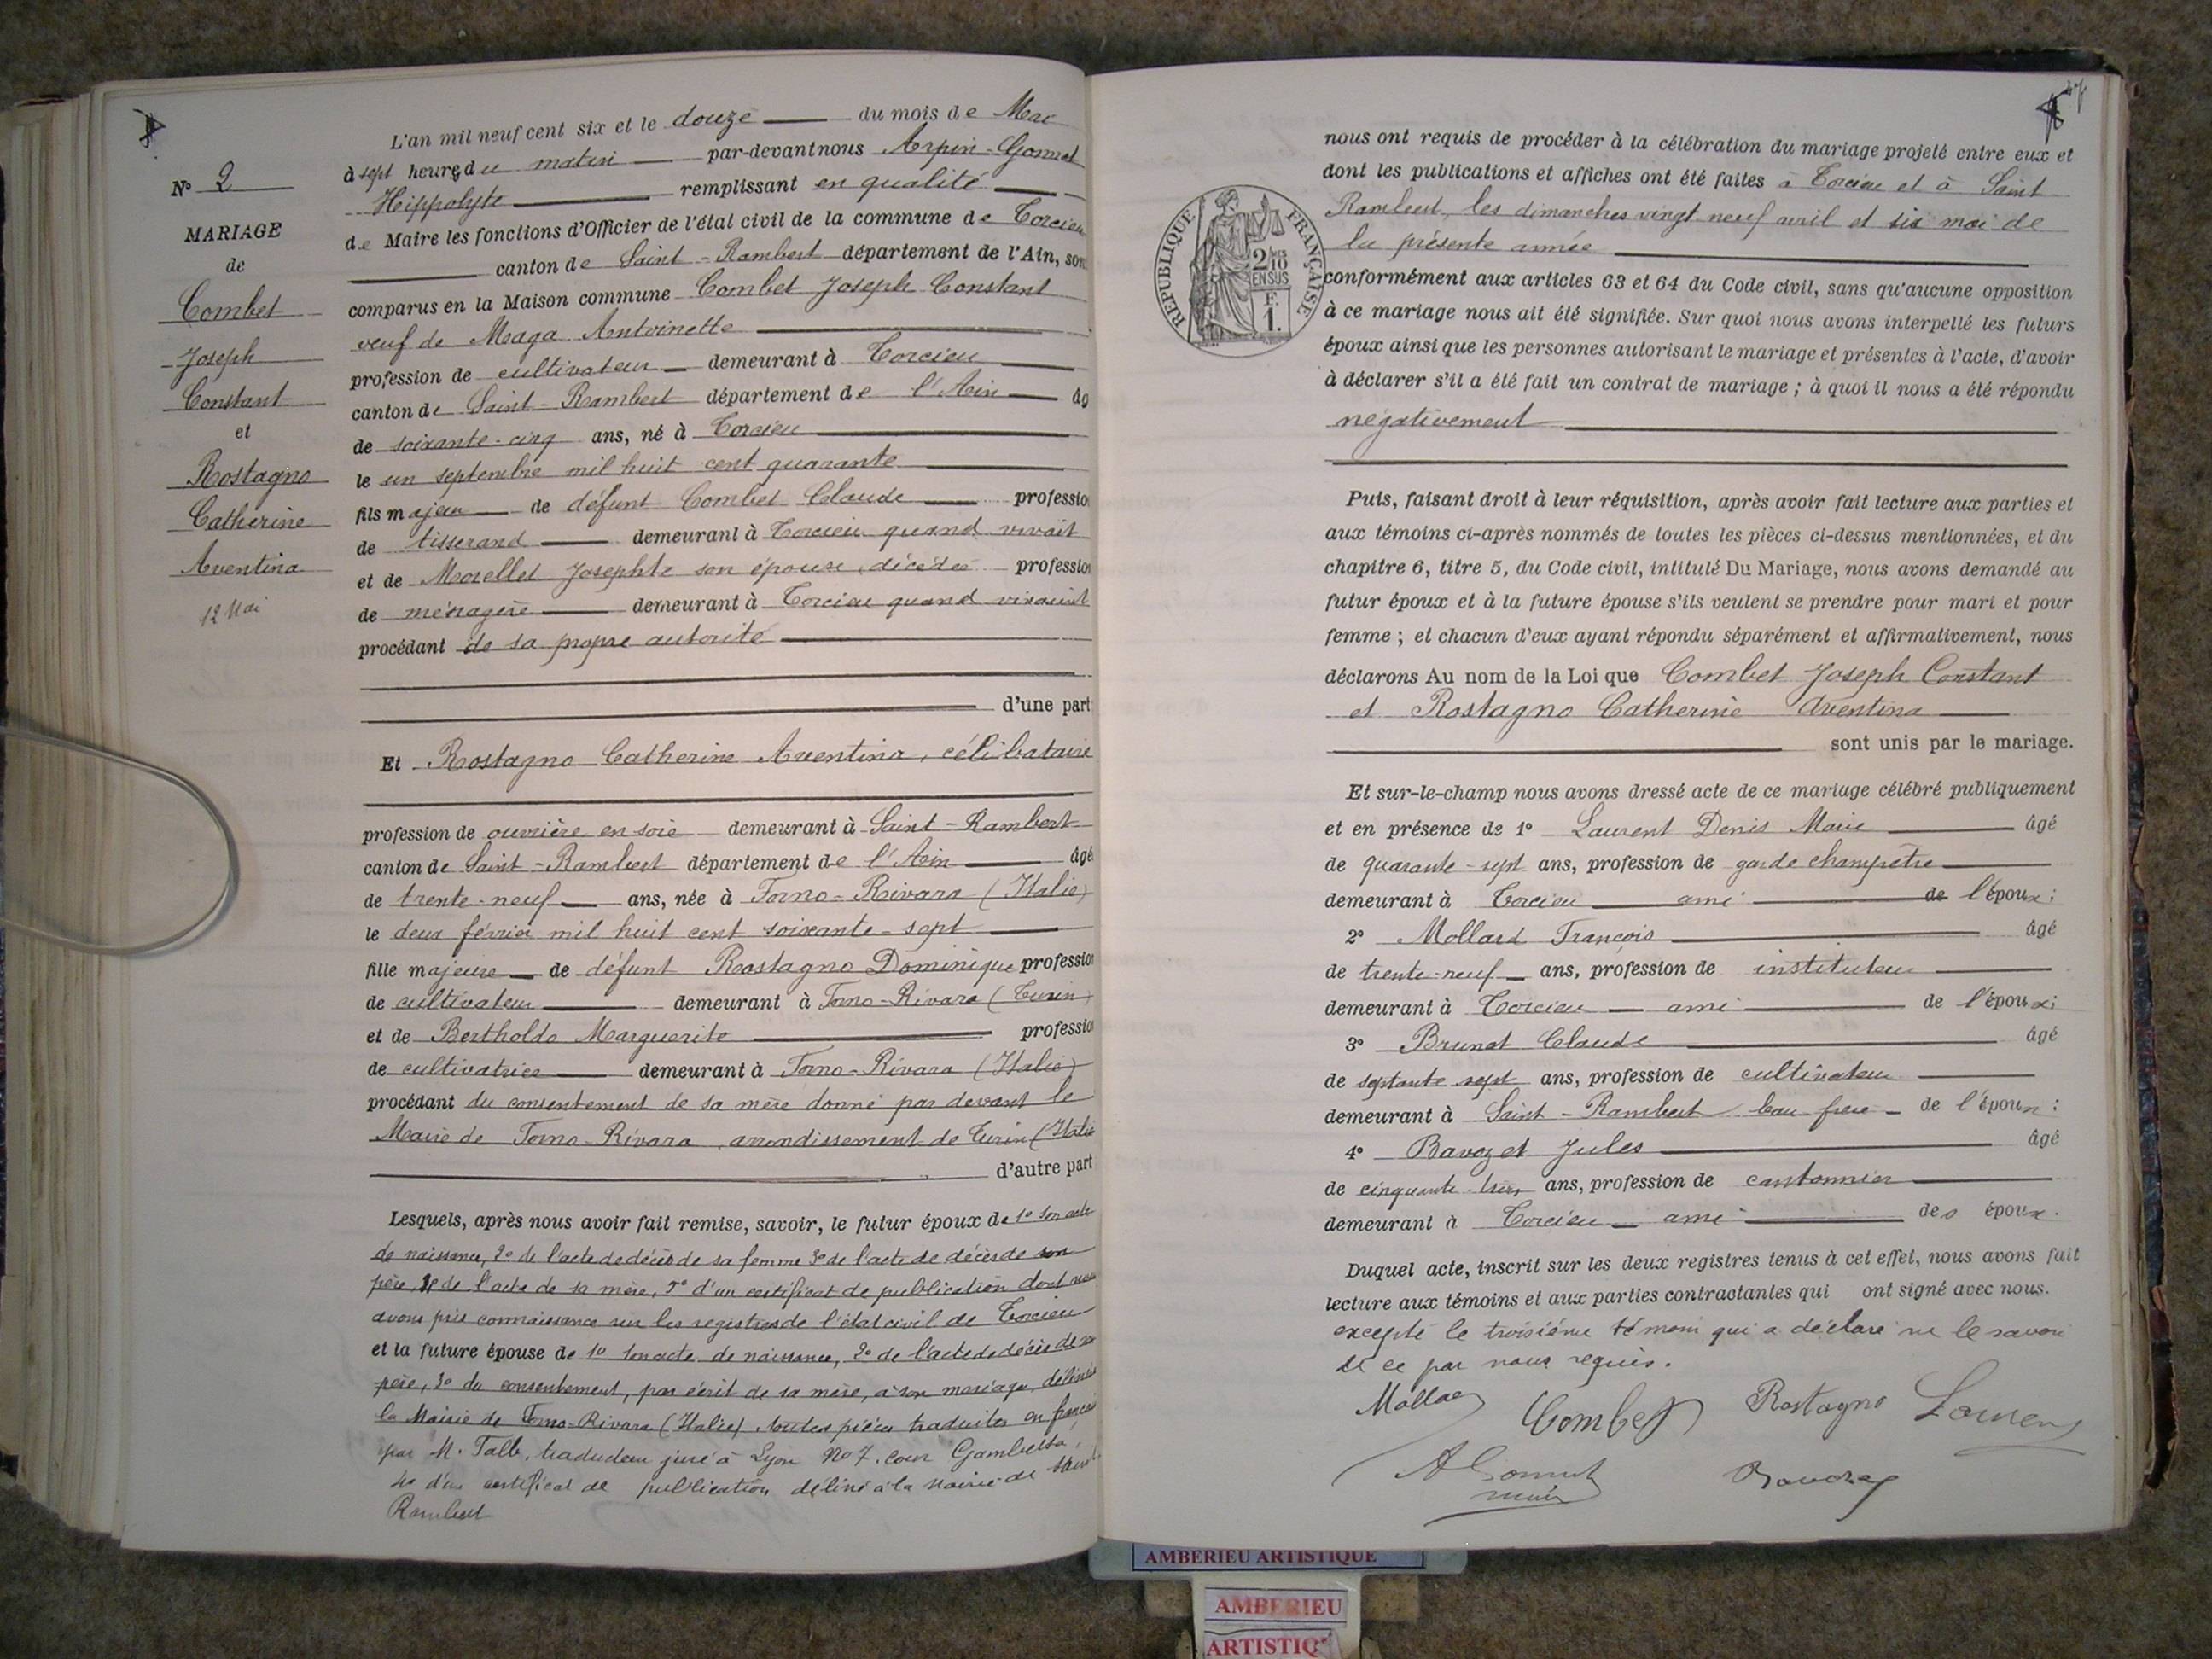 N° 2
MARIAGE
de
Combet
Joseph
Constant
et
Rostagno
Catherine
Aventina
12 Mai
L'an mil neuf cent six et le douze du mois de Mai
à sept heures du matin par-devant nous Arpin-Gonnet
Hippolyte remplissant en qualité
de Maire les fonctions d'Officier de l'état civil de la commune de Torcieu
canton de Saint-Rambert département de l'Ain, son
comparus en la Maison commune Combet Joseph Constant
veuf de Maga Antoinette
profession de cultivateur demeurant à Torcieu
canton de Saint-Rambert département de l'Ain âg
de soixante-cinq ans, né à Torcieu
le un septembre mil huit cent quarante
fils majeur de défunt Combet Claude professio
de tisserand demeurant à Torcieu quand vivait
et de Morellet Josephte son épouse, décédée profession
de ménagère demeurant à Torcieu quand vivait
procédant de sa propre autorité
d'une part
Et Rostagno Catherine Aventina, célibataire
profession de ouvrière en soie demeurant à Saint-Rambert
canton de Saint-Rambert département de l'Ain âgé
de trente-neuf ans, née à Forno-Rivara (Italie)
le deux février mil huit cent soixante-sept
fille majeure de défunt Rostagno Dominique professio
de cultivateur demeurant à Forno-Rivara (Turin)
et de Bertholdo Marguerite professio
de cultivatrice demeurant à Forno-Rivara (Italie)
procédant du consentement de sa mère donné par devant le
Maire de Forno-Rivara, arrondissement de Turin (Italie
d'autre part
Lesquels, après nous avoir fait remise, savoir, le futur époux de 1° son acte
de naissance, 2° de l'acte de décès de sa femme 3° de l'acte de décès de son
père, 4° de l'acte de sa mère, 5° d'un certificat de publication dont nous
avons pris connaissance sur les registres de l'état civil de Torcieu
et la future épouse de 1° son acte de naissance, 2° de l'acte de décès de son
père, 3° du consentement, par écrit de sa mère, à son mariage, délivrés
la Mairie de Forno-Rivara (Italie), toutes pièces traduites en français
par M. Talb, traducteur juré à Lyon N° 7. cour Gambetta,
4° d'un certificat de publication délivré à la mairie de Saint
Rambert
47
RÉPUBLIQUE FRANÇAISE
2/10
EN SUS
F.
1.
nous ont requis de procéder à la célébration du mariage projeté entre eux et
dont les publications et affiches ont été faites à Torcieu et à Saint
Rambert, les dimanches vingt neuf avril et six mai de
la présente année
conformément aux articles 63 et 64 du Code civil, sans qu'aucune opposition
à ce mariage nous ait été signifiée. Sur quoi nous avons interpellé les futurs
époux ainsi que les personnes autorisant le mariage et présentes à l'acte, d'avoir
à déclarer s'il a été fait un contrat de mariage ; à quoi il nous a été répondu
négativement
Puis, faisant droit à leur réquisition, après avoir fait lecture aux parties et
aux témoins ci-après nommés de toutes les pièces ci-dessus mentionnées, et du
chapitre 6, titre 5, du Code civil, intitulé Du Mariage, nous avons demandé au
futur époux et à la future épouse s'ils veulent se prendre pour mari et pour
femme ; et chacun d'eux ayant répondu séparément et affirmativement, nous
déclarons Au nom de la Loi que Combet Joseph Constant
et Rostagno Catherine Aventina
sont unis par le mariage.
Et sur-le-champ nous avons dressé acte de ce mariage célébré publiquement
et en présence de 1° Laurent Denis Marie âgé
de quarante-sept ans, profession de garde champêtre
demeurant à Torcieu ami de l'époux;
2° Mollard François âgé
de trente-neuf ans, profession de instituteur
demeurant à Torcieu ami de l'époux;
3° Brunet Claude âgé
de septante sept ans, profession de cultivateur
demeurant à Saint-Rambert beau-frère de l'époux;
4° Bavozet Jules âgé
de cinquante-trois ans, profession de cantonnier
demeurant à Torcieu ami des époux.
Duquel acte, inscrit sur les deux registres tenus à cet effet, nous avons fait
lecture aux témoins et aux parties contractantes qui ont signé avec nous.
excepté le troisième témoin qui a déclaré ne le savoir
de ce par nous requis.
Mollard Combet Rostagno Laurent
AGonnet
maire
AMBERIEU ARTISTIQUE
AMBERIEU
ARTISTIQ